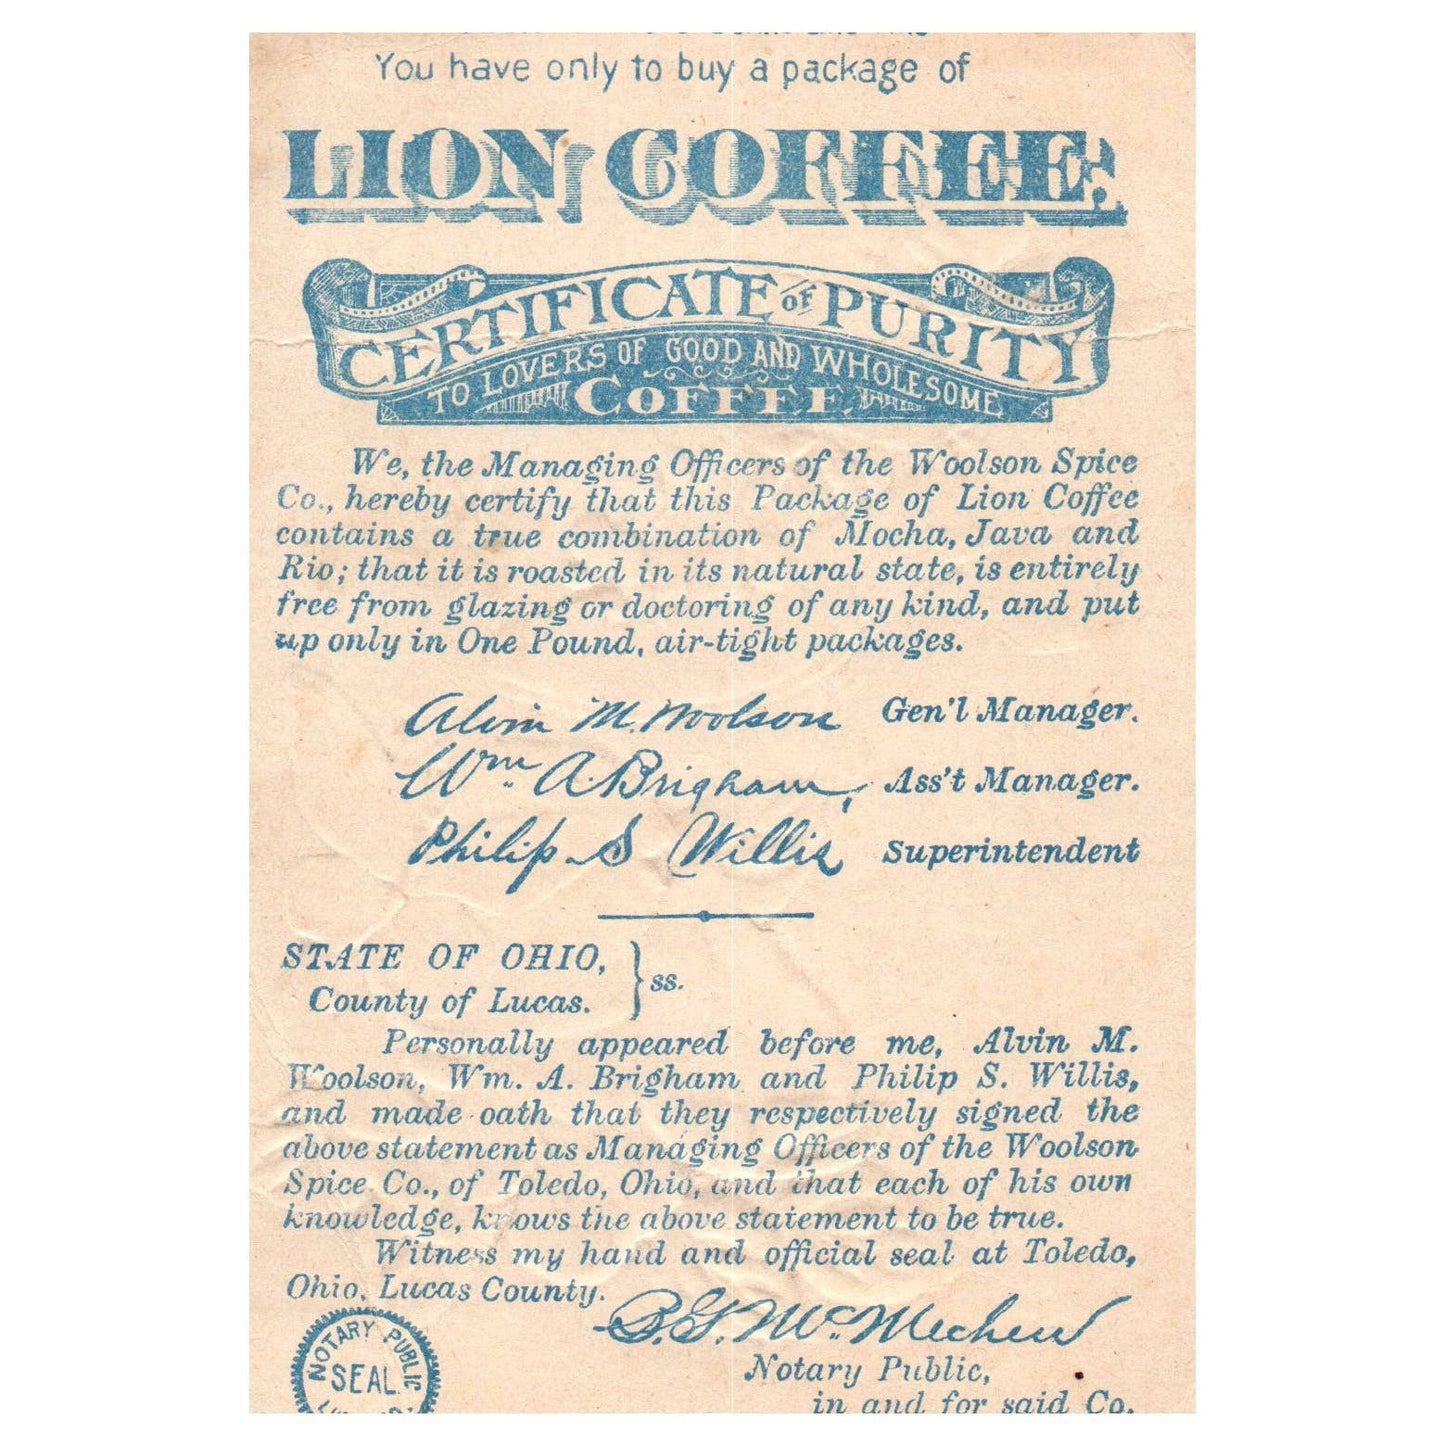 You have only to buy a package of
LION COFFEE.
CERTIFICATE OF PURITY
TO LOVERS OF GOOD AND WHOLESOME
COFFEE.
We, the Managing Officers of the Woolson Spice
Co., hereby certify that this Package of Lion Coffee
contains a true combination of Mocha, Java and
Rio; that it is roasted in its natural state, is entirely
free from glazing or doctoring of any kind, and put
up only in One Pound, air-tight packages.
Alvin M. Woolson Gen'l Manager.
Wm A. Brigham, Ass't Manager.
Philip S Willis Superintendent
STATE OF OHIO,
County of Lucas. } ss.
Personally appeared before me, Alvin M.
Woolson, Wm. A. Brigham and Philip S. Willis,
and made oath that they respectively signed the
above statement as Managing Officers of the Woolson
Spice Co., of Toledo, Ohio, and that each of his own
knowledge, knows the above statement to be true.
Witness my hand and official seal at Toledo,
Ohio, Lucas County.
B. G. McMechen
NOTARY PUBLIC
SEAL
Notary Public,
in and for said Co.